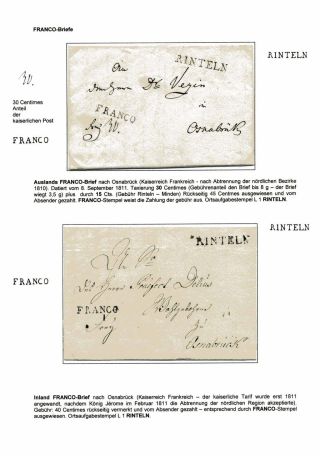 FRANCO-Briefe
RINTELN
30.
30 Centimes
Anteil
der
kaiserlichen Post
FRANCO
RINTELN
An
Vezin
in
FRANCO
30.
Osnabrück
Auslands FRANCO-Brief nach Osnabrück (Kaiserreich Frankreich - nach Abtrennung der nördlichen Bezirke
1810). Datiert vom 6. September 1811. Taxierung 30 Centimes (Gebührenanteil den Brief bis 8 g – der Brief
wiegt 3,5 g) plus durch 15 Cts. (Gebühr Rinteln – Minden) Rückseitig 45 Centimes ausgewiesen und vom
Absender gezahlt. FRANCO-Stempel weist die Zahlung der gebühr aus. Ortsaufgabestempel L 1 RINTELN.
RINTELN
RINTELN
FRANCO
Herrn
Delius
FRANCO
zu
Osnabrück
Inland FRANCO-Brief nach Osnabrück (Kaiserreich Frankreich – der kaiserliche Tarif wurde erst 1811
angewandt, nachdem König Jérome im Februar 1811 die Abtrennung der nördlichen Region akzeptierte).
Gebühr: 40 Centimes rückseitig vermerkt und vom Absender gezahlt – entsprechend durch FRANCO-Stempel
ausgewiesen. Ortsaufgabestempel L 1 RINTELN.